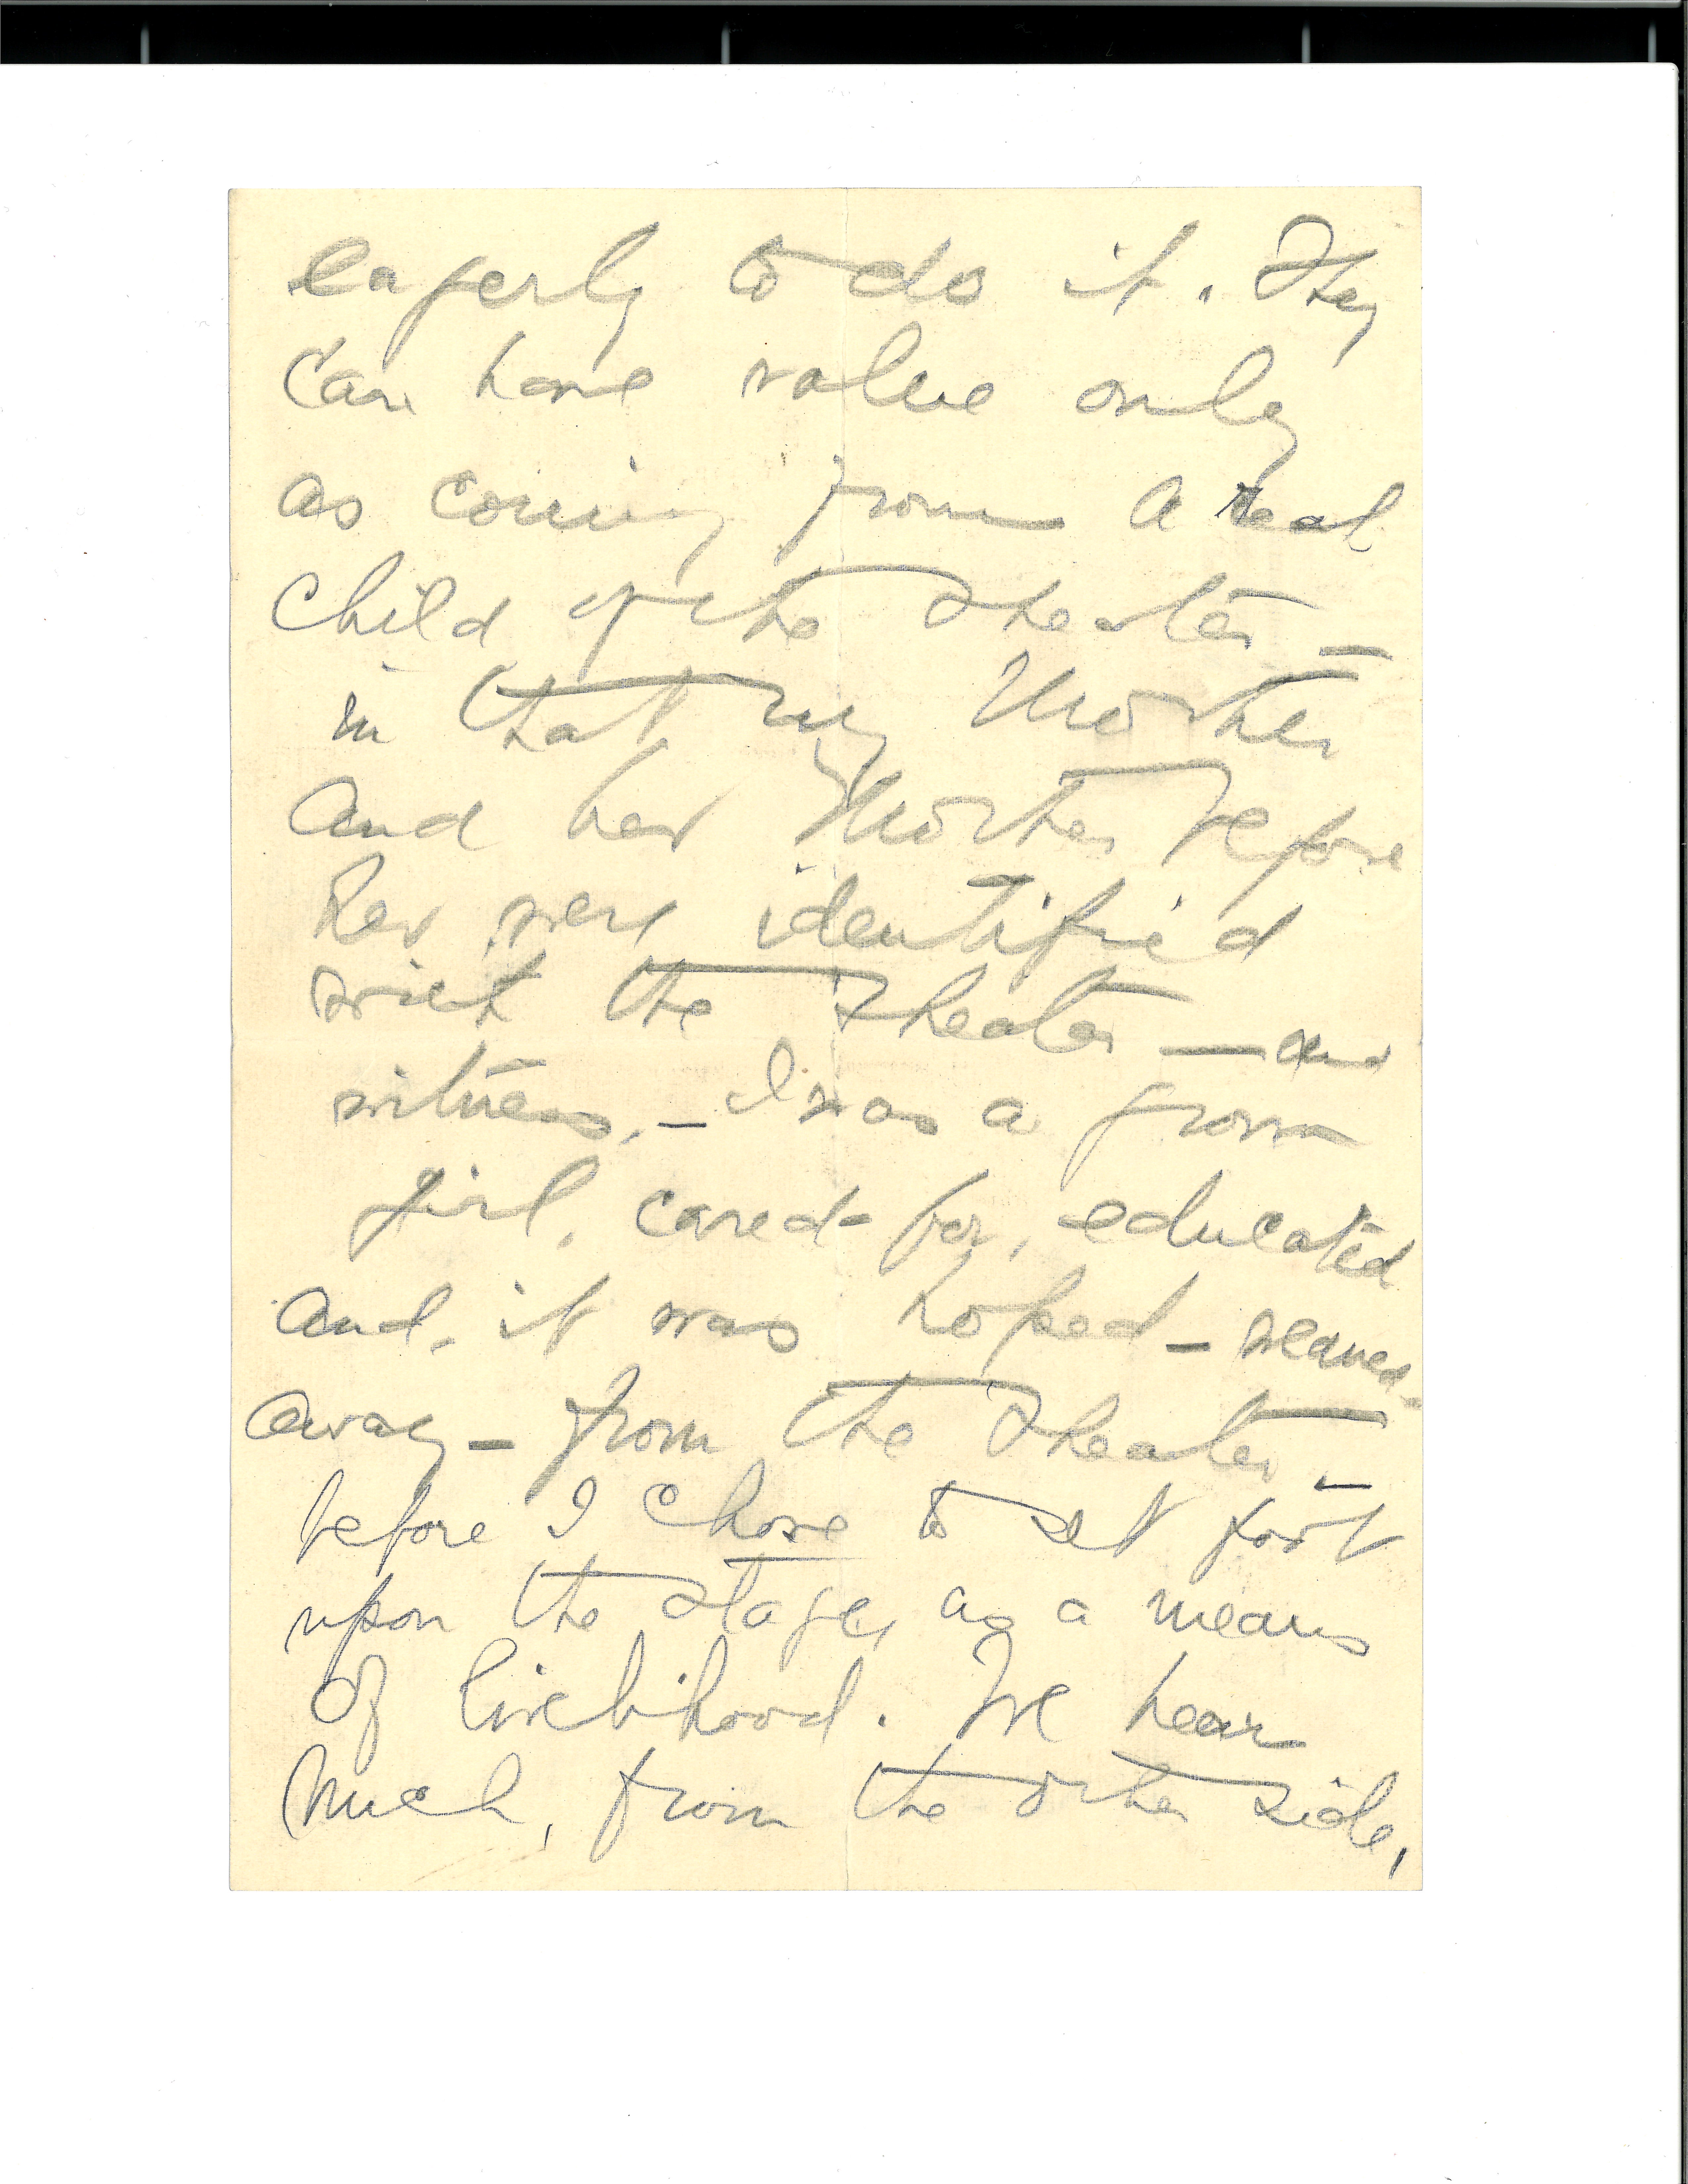 eagerly to do it. They
can have value only
as coming from a real
child of the theater —
in that my Mother
and her Mother before
her were identified
with the theater — and
witness, — I was a grown
girl, cared-for, educated
and, it was hoped — weaned
away — from the theater —
before I chose to set foot
upon the stage, as a means
of livelihood. We hear
much, from the other side,